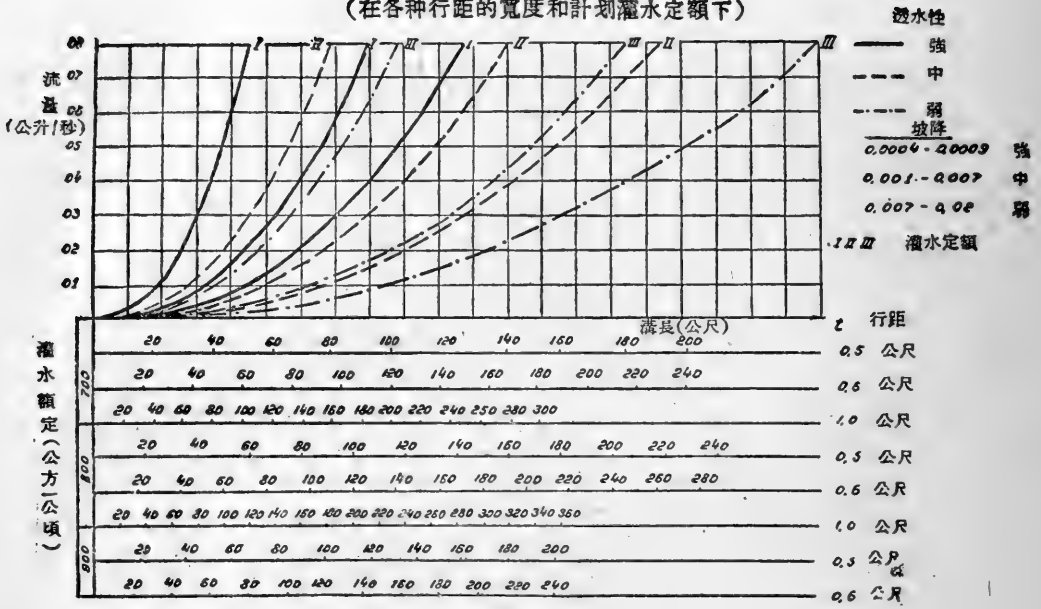 (在各种行距的寬度和計划灌水定額下)
透水性
強
中
弱
坡降
0.0004-0.0009 強
0.001-0.007 中
0.007-0.02 弱
I II III 灌水定額
流量
(公升/秒)
0.8
0.7
0.6
0.5
0.4
0.3
0.2
0.1
I II I III I II III II III
溝長(公尺)
t 行距
灌水額定(公方一公頃)
700
20 40 60 80 100 120 140 160 180 200 0.5 公尺
20 40 60 80 100 120 140 160 180 200 220 240 0.6 公尺
20 40 60 80 100 120 140 160 180 200 220 240 250 280 300 1.0 公尺
800
20 40 60 80 100 120 140 160 180 200 220 240 0.5 公尺
20 40 60 80 100 120 140 160 180 200 220 240 260 280 0.6 公尺
20 40 60 80 100 120 140 160 180 200 220 240 260 280 300 320 340 360 1.0 公尺
800
20 40 60 80 100 120 140 160 180 200 0.5 公尺
20 40 60 80 100 120 140 160 180 200 220 240 0.6 公尺